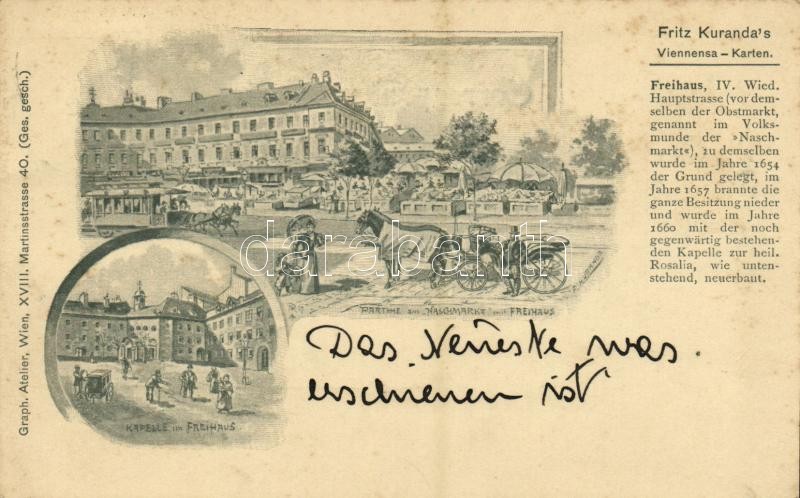 Fritz Kuranda's
Viennensa – Karten.
Freihaus, IV. Wied.
Hauptstrasse (vor dem-
selben der Obstmarkt,
genannt im Volks-
munde der »Nasch-
markt«), zu demselben
wurde im Jahre 1654
der Grund gelegt, im
Jahre 1657 brannte die
ganze Besitzung nieder
und wurde im Jahre
1660 mit der noch
gegenwärtig bestehen-
den Kapelle zur heil.
Rosalia, wie unten-
stehend, neuerbaut.
Graph. Atelier, Wien, XVIII. Martinsstrasse 40. (Ges. gesch.)
darabanth
PARTHIE am "NASCHMARKT" mit FREIHAUS
KAPELLE im FREIHAUS.
Das Neueste was
erschienen ist